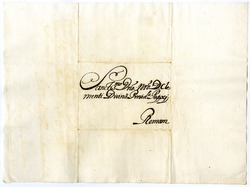 Sanct.mo D.no N.ro D. Cle
menti Divina Provid.a Papæ
Romam